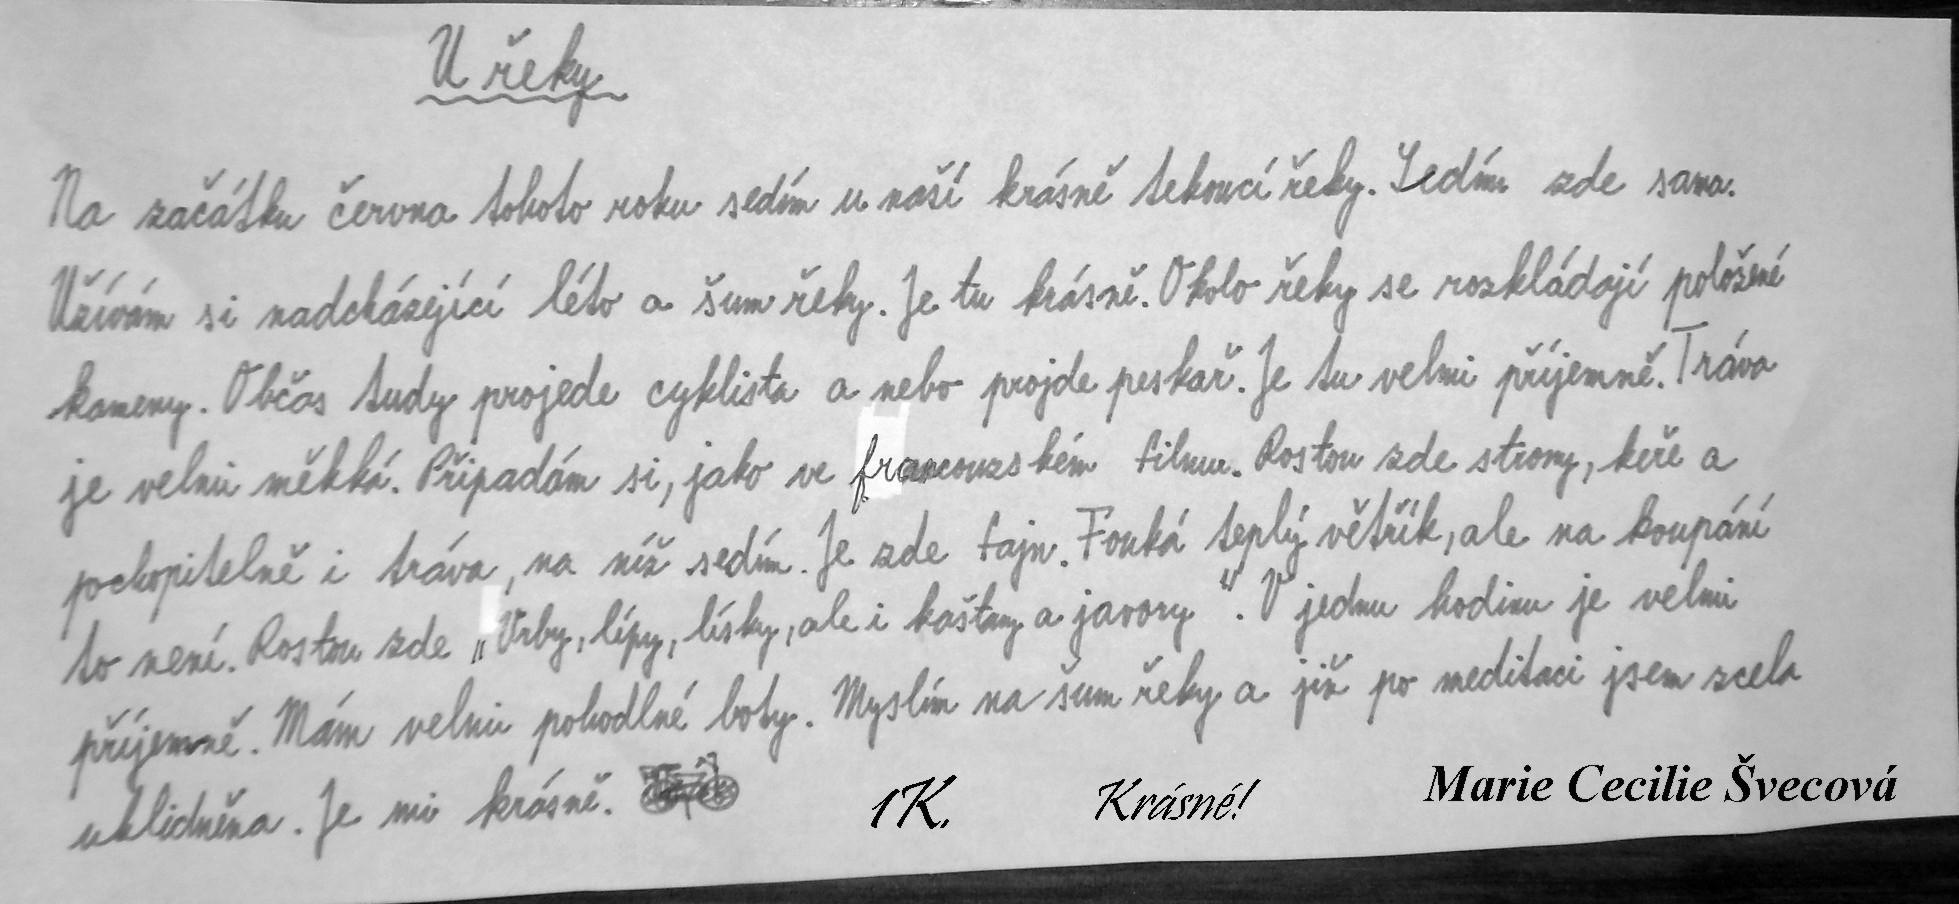 U řeky
Na začátku června tohoto roku sedím u naší krásně tekoucí řeky. Sedím zde sama.
Užívám si nadcházející léto a šum řeky. Je tu krásně. Okolo řeky se rozkládají položené
kameny. Občas tudy projede cyklista a nebo projde peskař. Je tu velmi příjemně. Tráva
je velmi měkká. Připadám si, jako ve francouzském filmu. Rostou zde stromy, keře a
pochopitelně i tráva, na níž sedím. Je zde fajn. Fouká teplý větřík, ale na koupání
to není. Rostou zde „Vrby, lípy, lísky, ale i kaštany a javory“. V jednu hodinu je velmi
příjemně. Mám velmi pohodlné boty. Myslím na šum řeky a již po meditaci jsem zcela
uklidněna. Je mi krásně.
1K. Krásné! Marie Cecilie Švecová